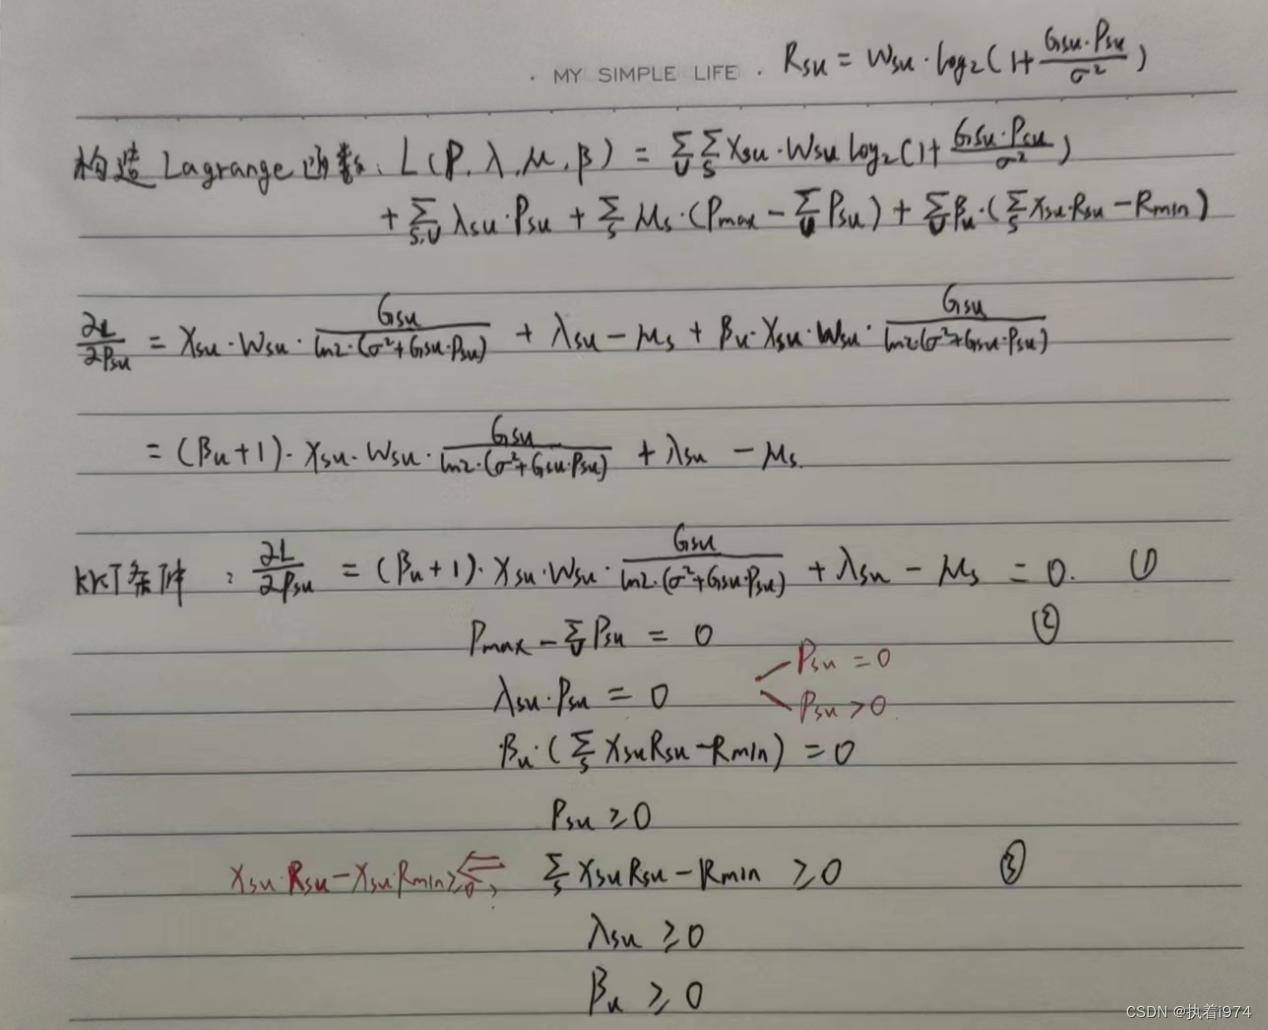 · MY SIMPLE LIFE · Rsu = Wsu · log₂(1+ Gsu·Psu/σ²)
构造Lagrange函数: L(P,λ,μ,β) = Σ_U Σ_S Xsu·Wsu log₂(1+ Gsu·Psu/σ²)
+ Σ_{S,U} λsu·Psu + Σ_S μs·(Pmax − Σ_U Psu) + Σ_U βu·(Σ_S Xsu·Rsu − Rmin)
∂L/∂Psu = Xsu·Wsu· Gsu/(ln2·(σ²+Gsu·Psu)) + λsu − μs + βu·Xsu·Wsu· Gsu/(ln2·(σ²+Gsu·Psu))
= (βu+1)·Xsu·Wsu· Gsu/(ln2·(σ²+Gsu·Psu)) + λsu − μs.
KKT条件: ∂L/∂Psu = (βu+1)·Xsu·Wsu· Gsu/(ln2·(σ²+Gsu·Psu)) + λsu − μs = 0. ①
Pmax − Σ_U Psu = 0 ②
λsu·Psu = 0 Psu = 0
Psu > 0
βu·(Σ_S XsuRsu − Rmin) = 0
Psu ≥ 0
Xsu·Rsu − Xsu·Rmin ≥ 0, ⇐ Σ_S XsuRsu − Rmin ≥ 0 ③
λsu ≥ 0
βu ≥ 0
CSDN @执着i974